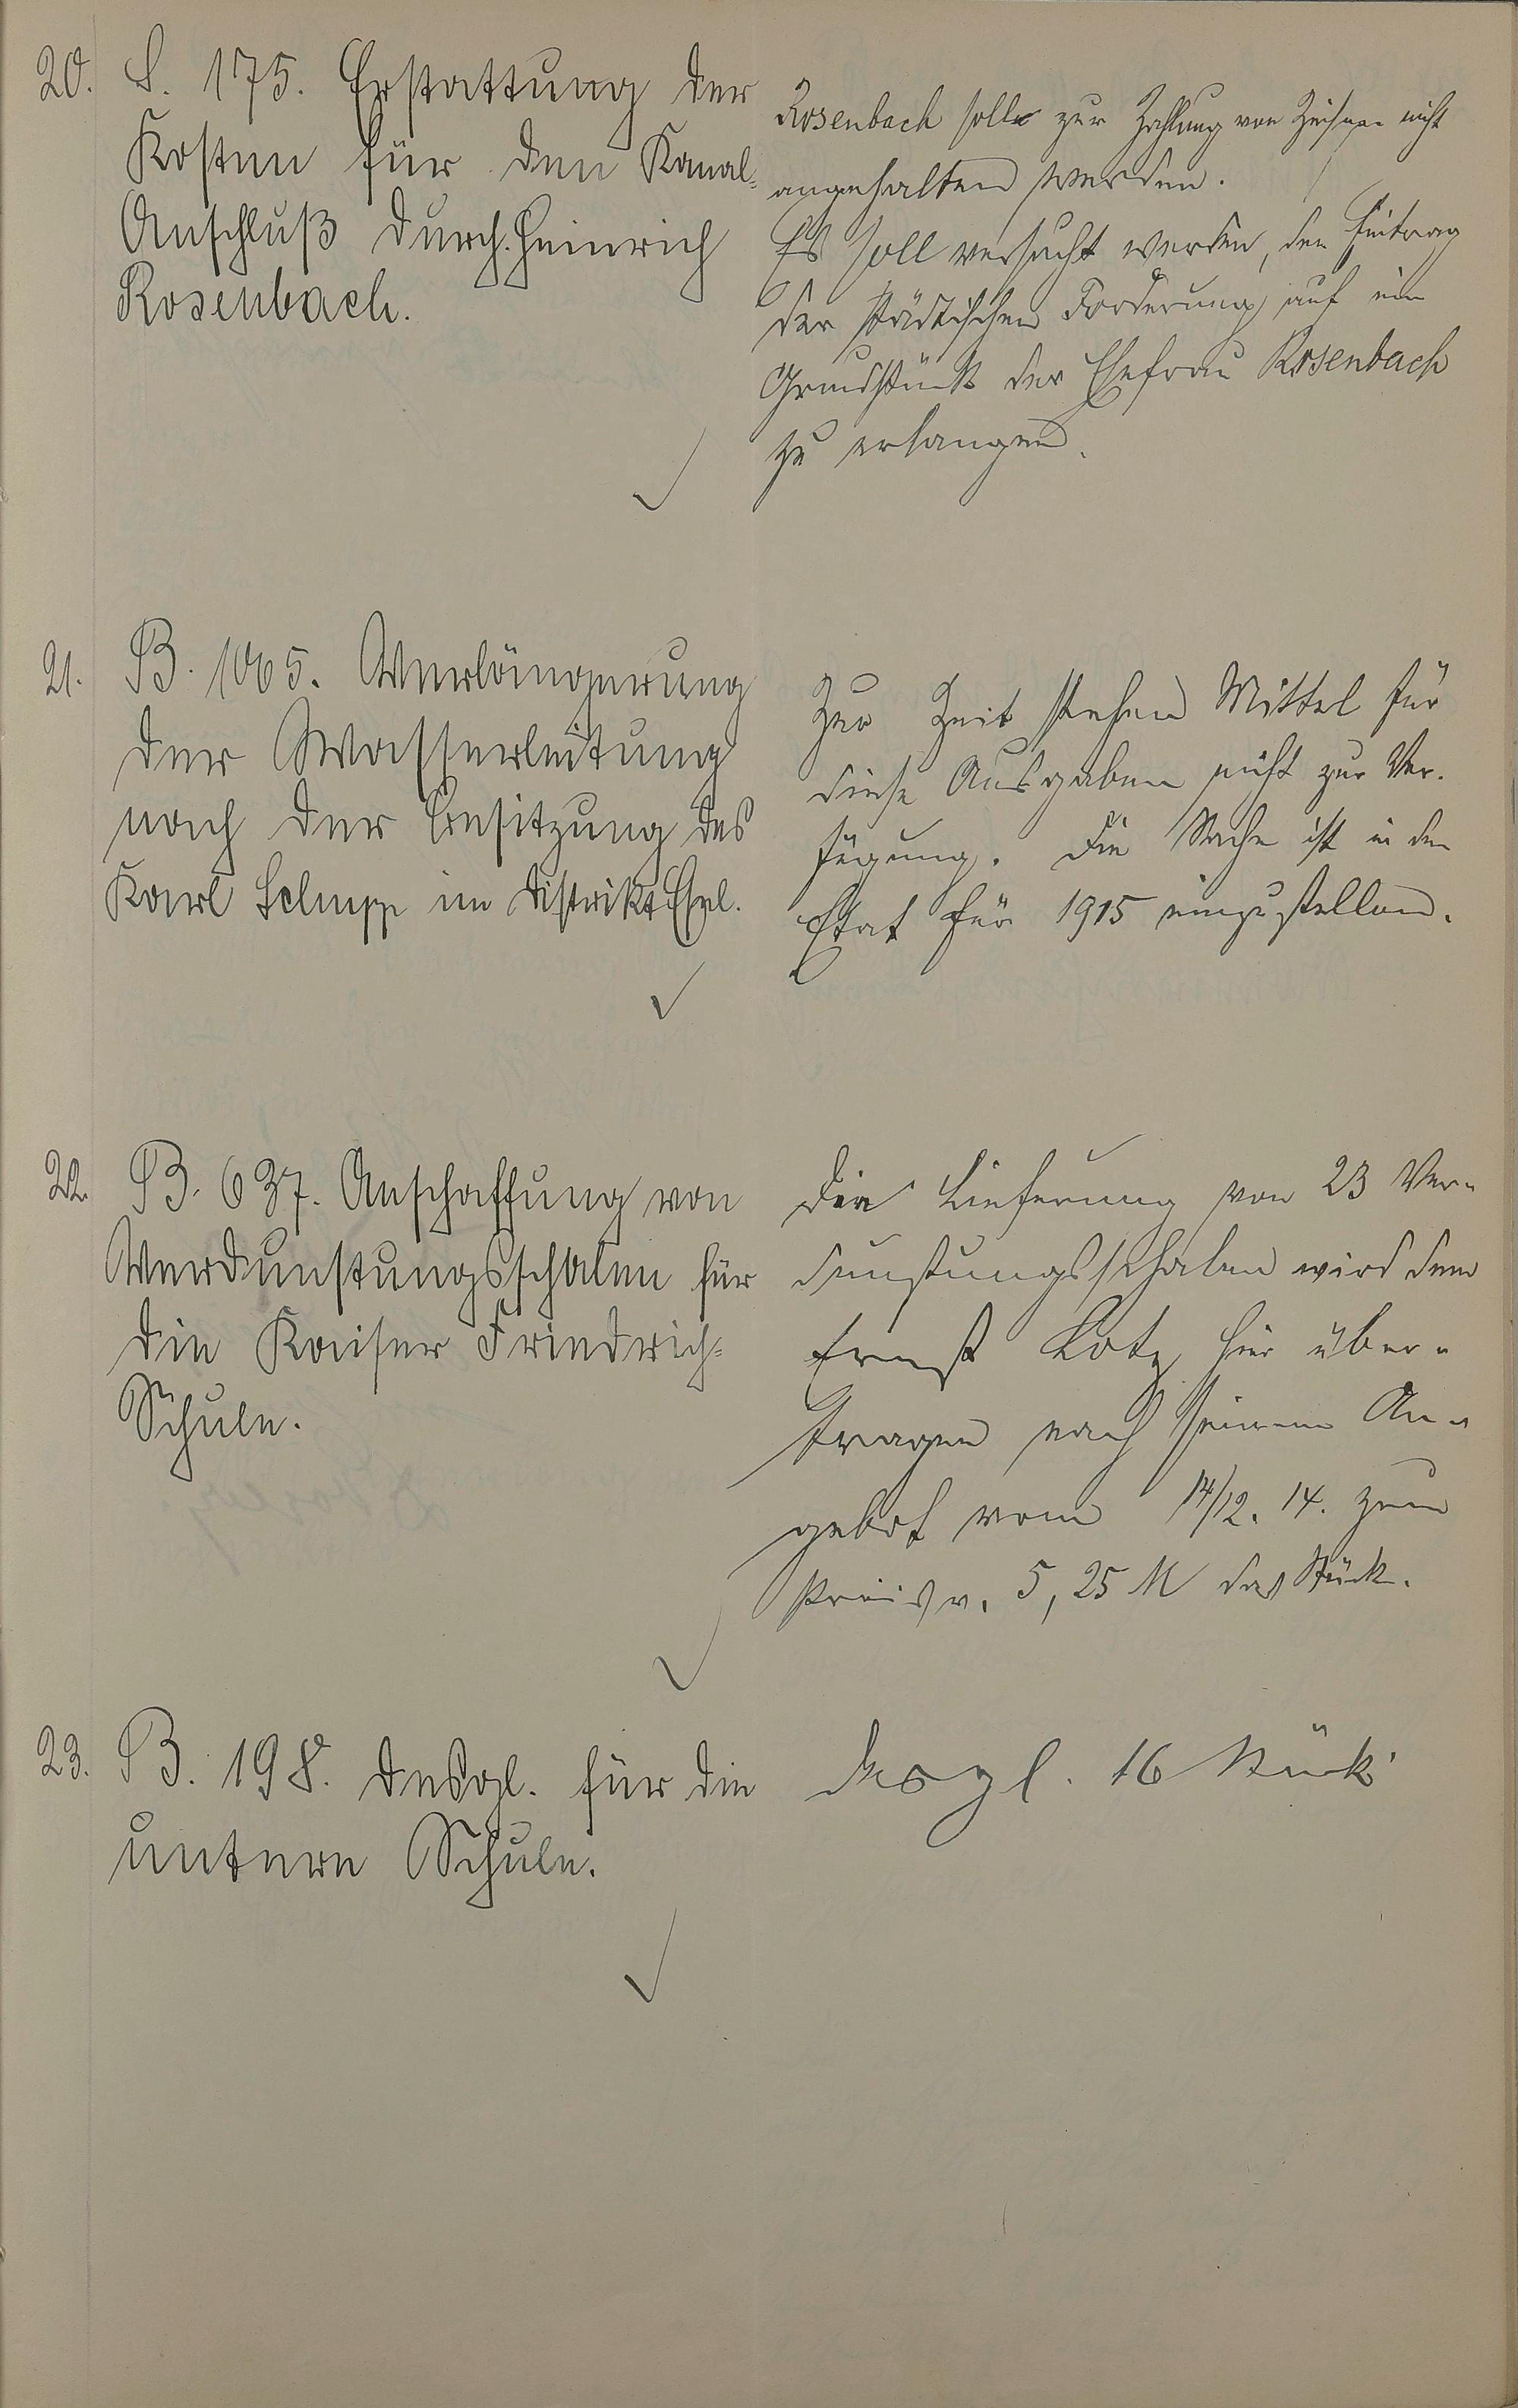 20. S. 175. Erstattung der
Kosten für den Kanal-
Anschluß durch Heinrich
Rosenbach.
Rosenbach soll zur Zahlung von Zinsen nicht
angehalten werden.
Es soll versucht werden, den Eintrag
der städtischen Forderung auf ein
Grundstück der Ehefrau Rosenbach
zu erlangen.
21. B. 1065. Verlängerung
der Wasserleitung
nach der Besitzung des
Karl im Distrikt
Zur Zeit stehen Mittel für
diese Ausgaben nicht zur Ver-
fügung. Die Sache ist in den
Etat für 1915 einzustellen.
22. B. 637. Anschaffung von
Verdunstungsschalen für
die Kaiser Friedrich-
Schule.
Die Lieferung von 23 Ver-
dunstungsschalen wird dem
Ernst Lotz hier über-
tragen nach seinem An-
gebot vom 14/12. 14. zum
Preis v. 5,25 M das Stück.
23. B. 198. Desgl. für die
untere Schule.
Desgl. 16 Stück